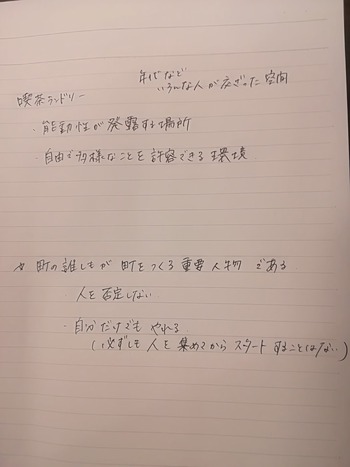 年代など
いろんな人が交ざった空間
喫茶ランドリー
・能動性が発露する場所
・自由で多様なことを許容できる環境
☆ 町の誰しもが町をつくる重要人物である
人を否定しない
・自分だけでもやれる
(必ずしも人を集めてからスタートすることはない)